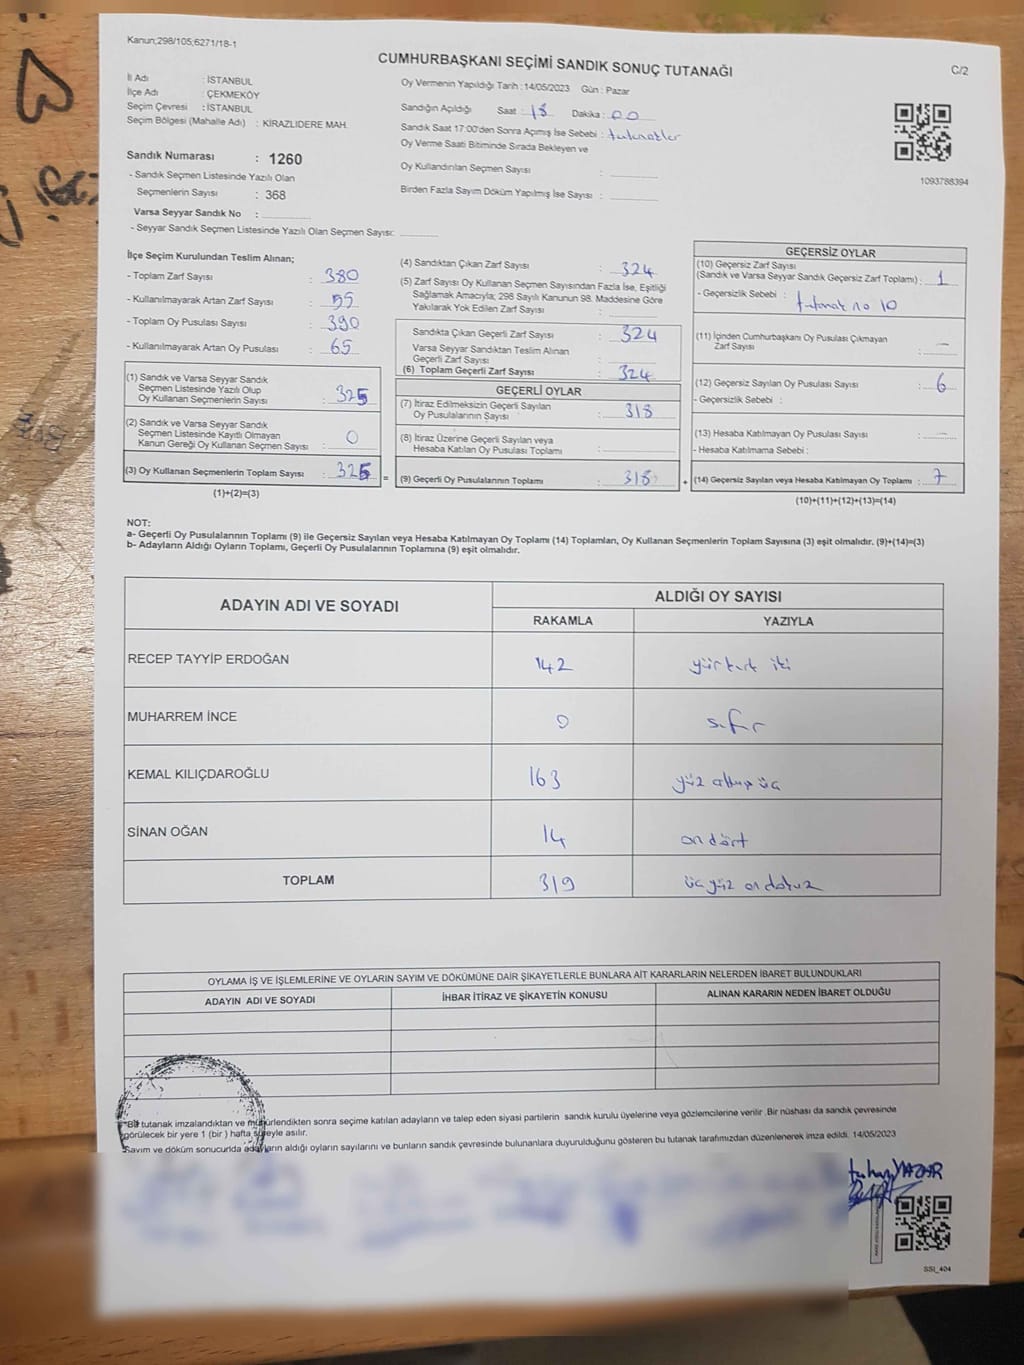 Kanun;298/105;6271/18-1
CUMHURBAŞKANI SEÇİMİ SANDIK SONUÇ TUTANAĞI
C/2
İl Adı : İSTANBUL
İlçe Adı : ÇEKMEKÖY
Seçim Çevresi : İSTANBUL
Seçim Bölgesi (Mahalle Adı) : KİRAZLIDERE MAH.
Sandık Numarası : 1260
- Sandık Seçmen Listesinde Yazılı Olan
Seçmenlerin Sayısı : 368
Varsa Seyyar Sandık No :
- Seyyar Sandık Seçmen Listesinde Yazılı Olan Seçmen Sayısı:
Oy Vermenin Yapıldığı Tarih : 14/05/2023 Gün : Pazar
Sandığın Açıldığı Saat : 18 Dakika : 00
Sandık Saat 17:00'den Sonra Açımış İse Sebebi : tutanaklar
Oy Verme Saati Bitiminde Sırada Bekleyen ve
Oy Kullandırılan Seçmen Sayısı :
Birden Fazla Sayım Döküm Yapılmış İse Sayısı :
1093788394
İlçe Seçim Kurulundan Teslim Alınan;
- Toplam Zarf Sayısı : 380
- Kullanılmayarak Artan Zarf Sayısı : 55
- Toplam Oy Pusulası Sayısı : 390
- Kullanılmayarak Artan Oy Pusulası : 65
(1) Sandık ve Varsa Seyyar Sandık
Seçmen Listesinde Yazılı Olup
Oy Kullanan Seçmenlerin Sayısı : 325
(2) Sandık ve Varsa Seyyar Sandık
Seçmen Listesinde Kayıtlı Olmayan
Kanun Gereği Oy Kullanan Seçmen Sayısı : 0
(3) Oy Kullanan Seçmenlerin Toplam Sayısı : 325 =
(1)+(2)=(3)
(4) Sandıktan Çıkan Zarf Sayısı : 324
(5) Zarf Sayısı Oy Kullanan Seçmen Sayısından Fazla İse, Eşitliği
Sağlamak Amacıyla; 298 Sayılı Kanunun 98. Maddesine Göre
Yakılarak Yok Edilen Zarf Sayısı :
Sandıkta Çıkan Geçerli Zarf Sayısı : 324
Varsa Seyyar Sandıktan Teslim Alınan
Geçerli Zarf Sayısı :
(6) Toplam Geçerli Zarf Sayısı : 324
GEÇERLİ OYLAR
(7) İtiraz Edilmeksizin Geçerli Sayılan
Oy Pusulalarının Sayısı : 318
(8) İtiraz Üzerine Geçerli Sayılan veya
Hesaba Katılan Oy Pusulası Toplamı :
(9) Geçerli Oy Pusulalarının Toplamı : 318 +
GEÇERSİZ OYLAR
(10) Geçersiz Zarf Sayısı
(Sandık ve Varsa Seyyar Sandık Geçersiz Zarf Toplamı) : 1
- Geçersizlik Sebebi : tutanak no 10
(11) İçinden Cumhurbaşkanı Oy Pusulası Çıkmayan
Zarf Sayısı : -
(12) Geçersiz Sayılan Oy Pusulası Sayısı : 6
- Geçersizlik Sebebi :
(13) Hesaba Katılmayan Oy Pusulası Sayısı : -
- Hesaba Katılmama Sebebi :
(14) Geçersiz Sayılan veya Hesaba Katılmayan Oy Toplamı : 7
(10)+(11)+(12)+(13)=(14)
NOT:
a- Geçerli Oy Pusulalarının Toplamı (9) ile Geçersiz Sayılan veya Hesaba Katılmayan Oy Toplamı (14) Toplamları, Oy Kullanan Seçmenlerin Toplam Sayısına (3) eşit olmalıdır. (9)+(14)=(3)
b- Adayların Aldığı Oyların Toplamı, Geçerli Oy Pusulalarının Toplamına (9) eşit olmalıdır.
ADAYIN ADI VE SOYADI
ALDIĞI OY SAYISI
RAKAMLA YAZIYLA
RECEP TAYYİP ERDOĞAN 142 yüz kırk iki
MUHARREM İNCE 0 sıfır
KEMAL KILIÇDAROĞLU 163 yüz altmış üç
SİNAN OĞAN 14 on dört
TOPLAM 319 üç yüz on dokuz
OYLAMA İŞ VE İŞLEMLERİNE VE OYLARIN SAYIM VE DÖKÜMÜNE DAİR ŞİKAYETLERLE BUNLARA AİT KARARLARIN NELERDEN İBARET BULUNDUKLARI
ADAYIN ADI VE SOYADI İHBAR İTİRAZ VE ŞİKAYETİN KONUSU ALINAN KARARIN NEDEN İBARET OLDUĞU
*Bir tutanak imzalandıktan ve mühürlendikten sonra seçime katılan adayların ve talep eden siyasi partilerin sandık kurulu üyelerine veya gözlemcilerine verilir. Bir nüshası da sandık çevresinde
görülecek bir yere 1 (bir ) hafta süreyle asılır.
Sayım ve döküm sonucunda adayların aldığı oyların sayılarını ve bunların sandık çevresinde bulunanlara duyurulduğunu gösteren bu tutanak tarafımızdan düzenlenerek imza edildi. 14/05/2023
YAZAR
SSI_404